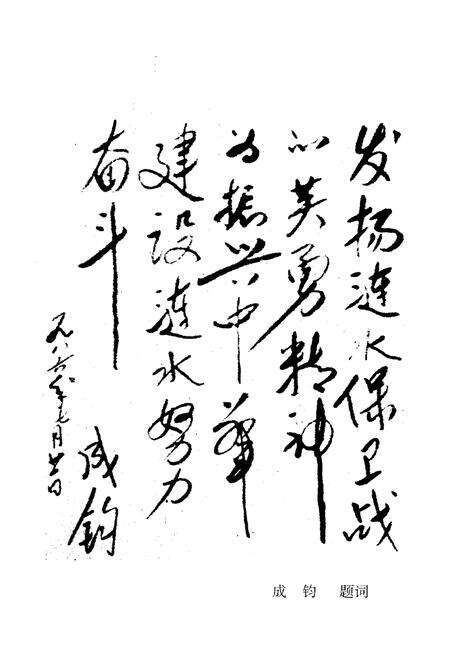 发扬涟水保卫战
的英勇精神
为振兴中华
建设涟水努力
奋斗
成钧
一九八六年七月廿一日
成 钧 题词